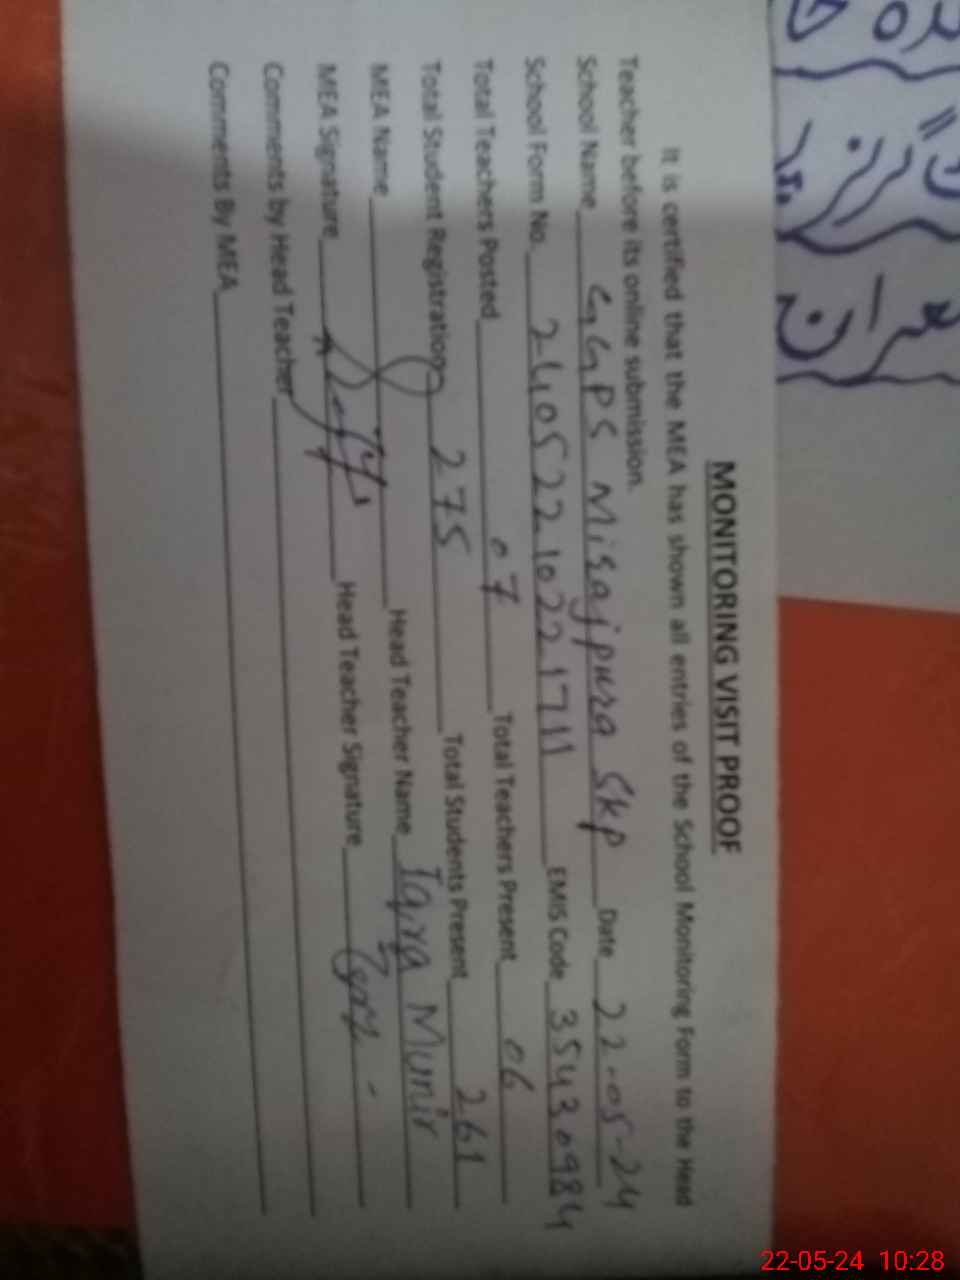 MONITORING VISIT PROOF
It is certified that the MEA has shown all entries of the School Monitoring Form to the Head
Teacher before its online submission.
School Name GGPS Misajpura Skp Date 22-05-24
School Form No. 240522102217 11 EMIS Code 35430984
Total Teachers Posted 07 Total Teachers Present 06
Total Student Registration 275 Total Students Present 261
MEA Name Head Teacher Name Taira Munir
MEA Signature Head Teacher Signature
Comments by Head Teacher
Comments By MEA
22-05-24 10:28